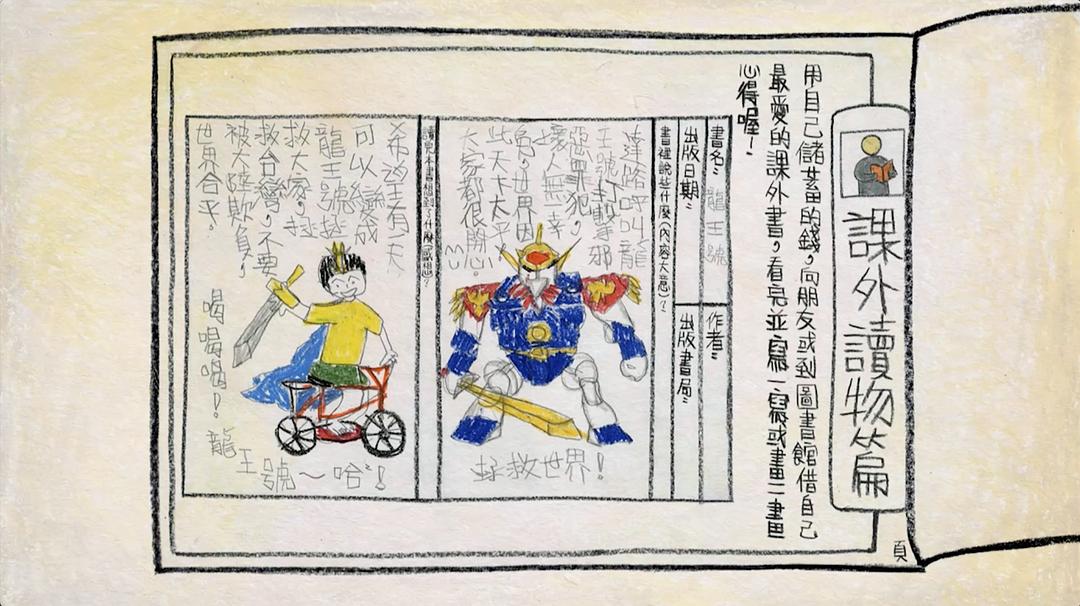 課外讀物篇
用自己儲蓄的錢，向朋友或到圖書館借自己
最愛的課外書，看完並寫一寫或畫一畫
心得喔！
書名：龍王號
作者：
出版日期：
出版書局：
書裡說些什麼(內容大意)？
達路呼叫龍
王號打擊邪
惡罪犯，
壞人無幸
免，世界因
些大大太平！
大家都很開心！
拯救世界！
讀完本書想到了什麼(感想)？
希望有
可以變成
龍王號拯
救大家，拯
救台灣，不要
被大陸欺負，
世界合平。
喝喝喝！
龍王號～哈！
頁